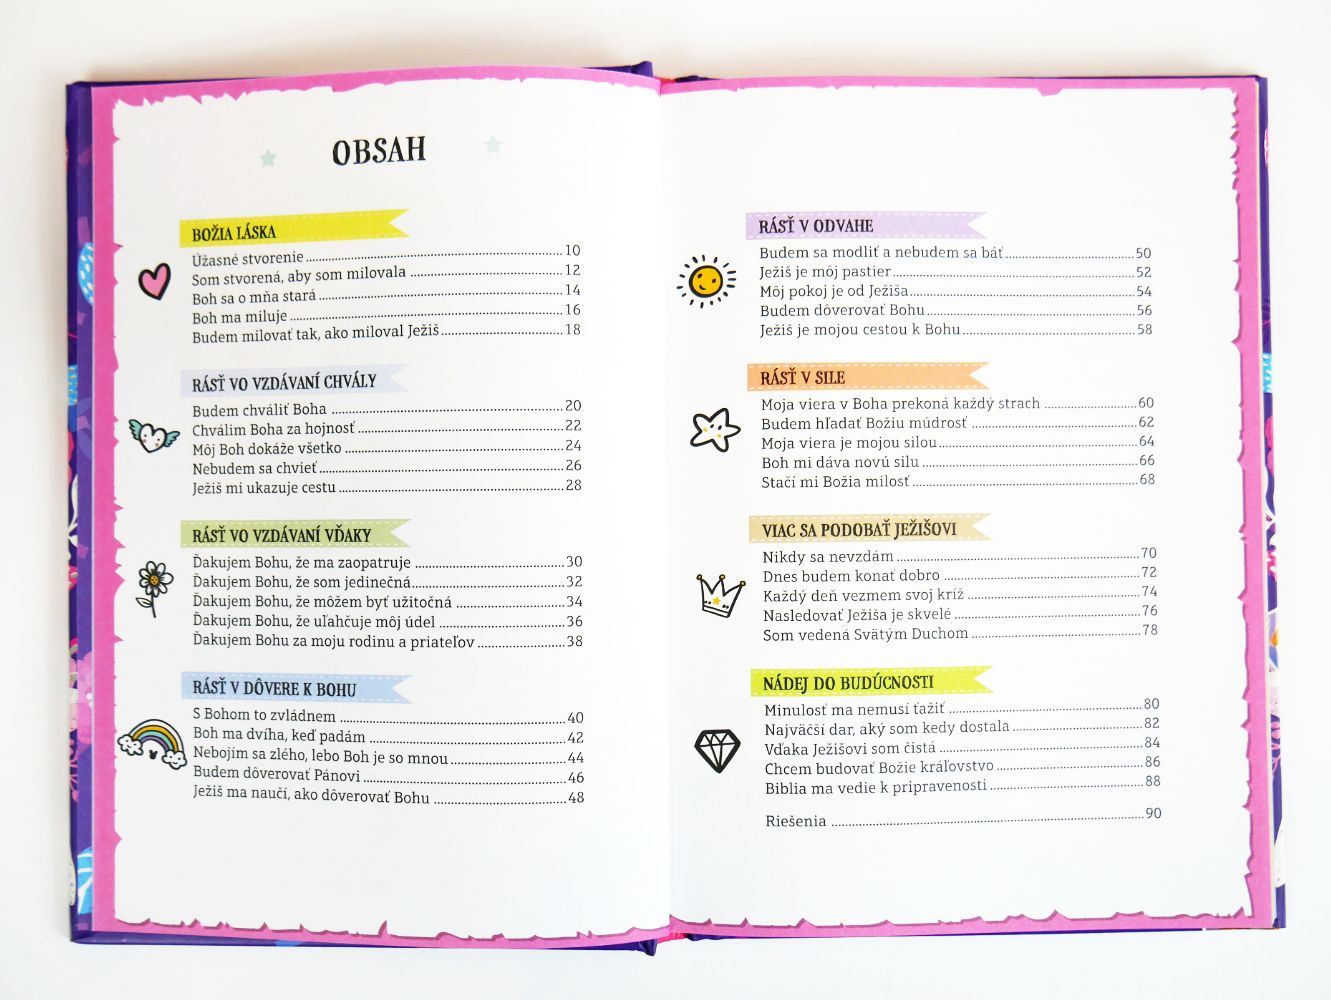 OBSAH
BOŽIA LÁSKA
Úžasné stvorenie 10
Som stvorená, aby som milovala 12
Boh sa o mňa stará 14
Boh ma miluje 16
Budem milovať tak, ako miloval Ježiš 18
RÁSŤ VO VZDÁVANÍ CHVÁLY
Budem chváliť Boha 20
Chválim Boha za hojnosť 22
Môj Boh dokáže všetko 24
Nebudem sa chvieť 26
Ježiš mi ukazuje cestu 28
RÁSŤ VO VZDÁVANÍ VĎAKY
Ďakujem Bohu, že ma zaopatruje 30
Ďakujem Bohu, že som jedinečná 32
Ďakujem Bohu, že môžem byť užitočná 34
Ďakujem Bohu, že uľahčuje môj údel 36
Ďakujem Bohu za moju rodinu a priateľov 38
RÁSŤ V DÔVERE K BOHU
S Bohom to zvládnem 40
Boh ma dvíha, keď padám 42
Nebojím sa zlého, lebo Boh je so mnou 44
Budem dôverovať Pánovi 46
Ježiš ma naučí, ako dôverovať Bohu 48
RÁSŤ V ODVAHE
Budem sa modliť a nebudem sa báť 50
Ježiš je môj pastier 52
Môj pokoj je od Ježiša 54
Budem dôverovať Bohu 56
Ježiš je mojou cestou k Bohu 58
RÁSŤ V SILE
Moja viera v Boha prekoná každý strach 60
Budem hľadať Božiu múdrosť 62
Moja viera je mojou silou 64
Boh mi dáva novú silu 66
Stačí mi Božia milosť 68
VIAC SA PODOBAŤ JEŽIŠOVI
Nikdy sa nevzdám 70
Dnes budem konať dobro 72
Každý deň vezmem svoj kríž 74
Nasledovať Ježiša je skvelé 76
Som vedená Svätým Duchom 78
NÁDEJ DO BUDÚCNOSTI
Minulosť ma nemusí ťažiť 80
Najväčší dar, aký som kedy dostala 82
Vďaka Ježišovi som čistá 84
Chcem budovať Božie kráľovstvo 86
Biblia ma vedie k pripravenosti 88
Riešenia 90